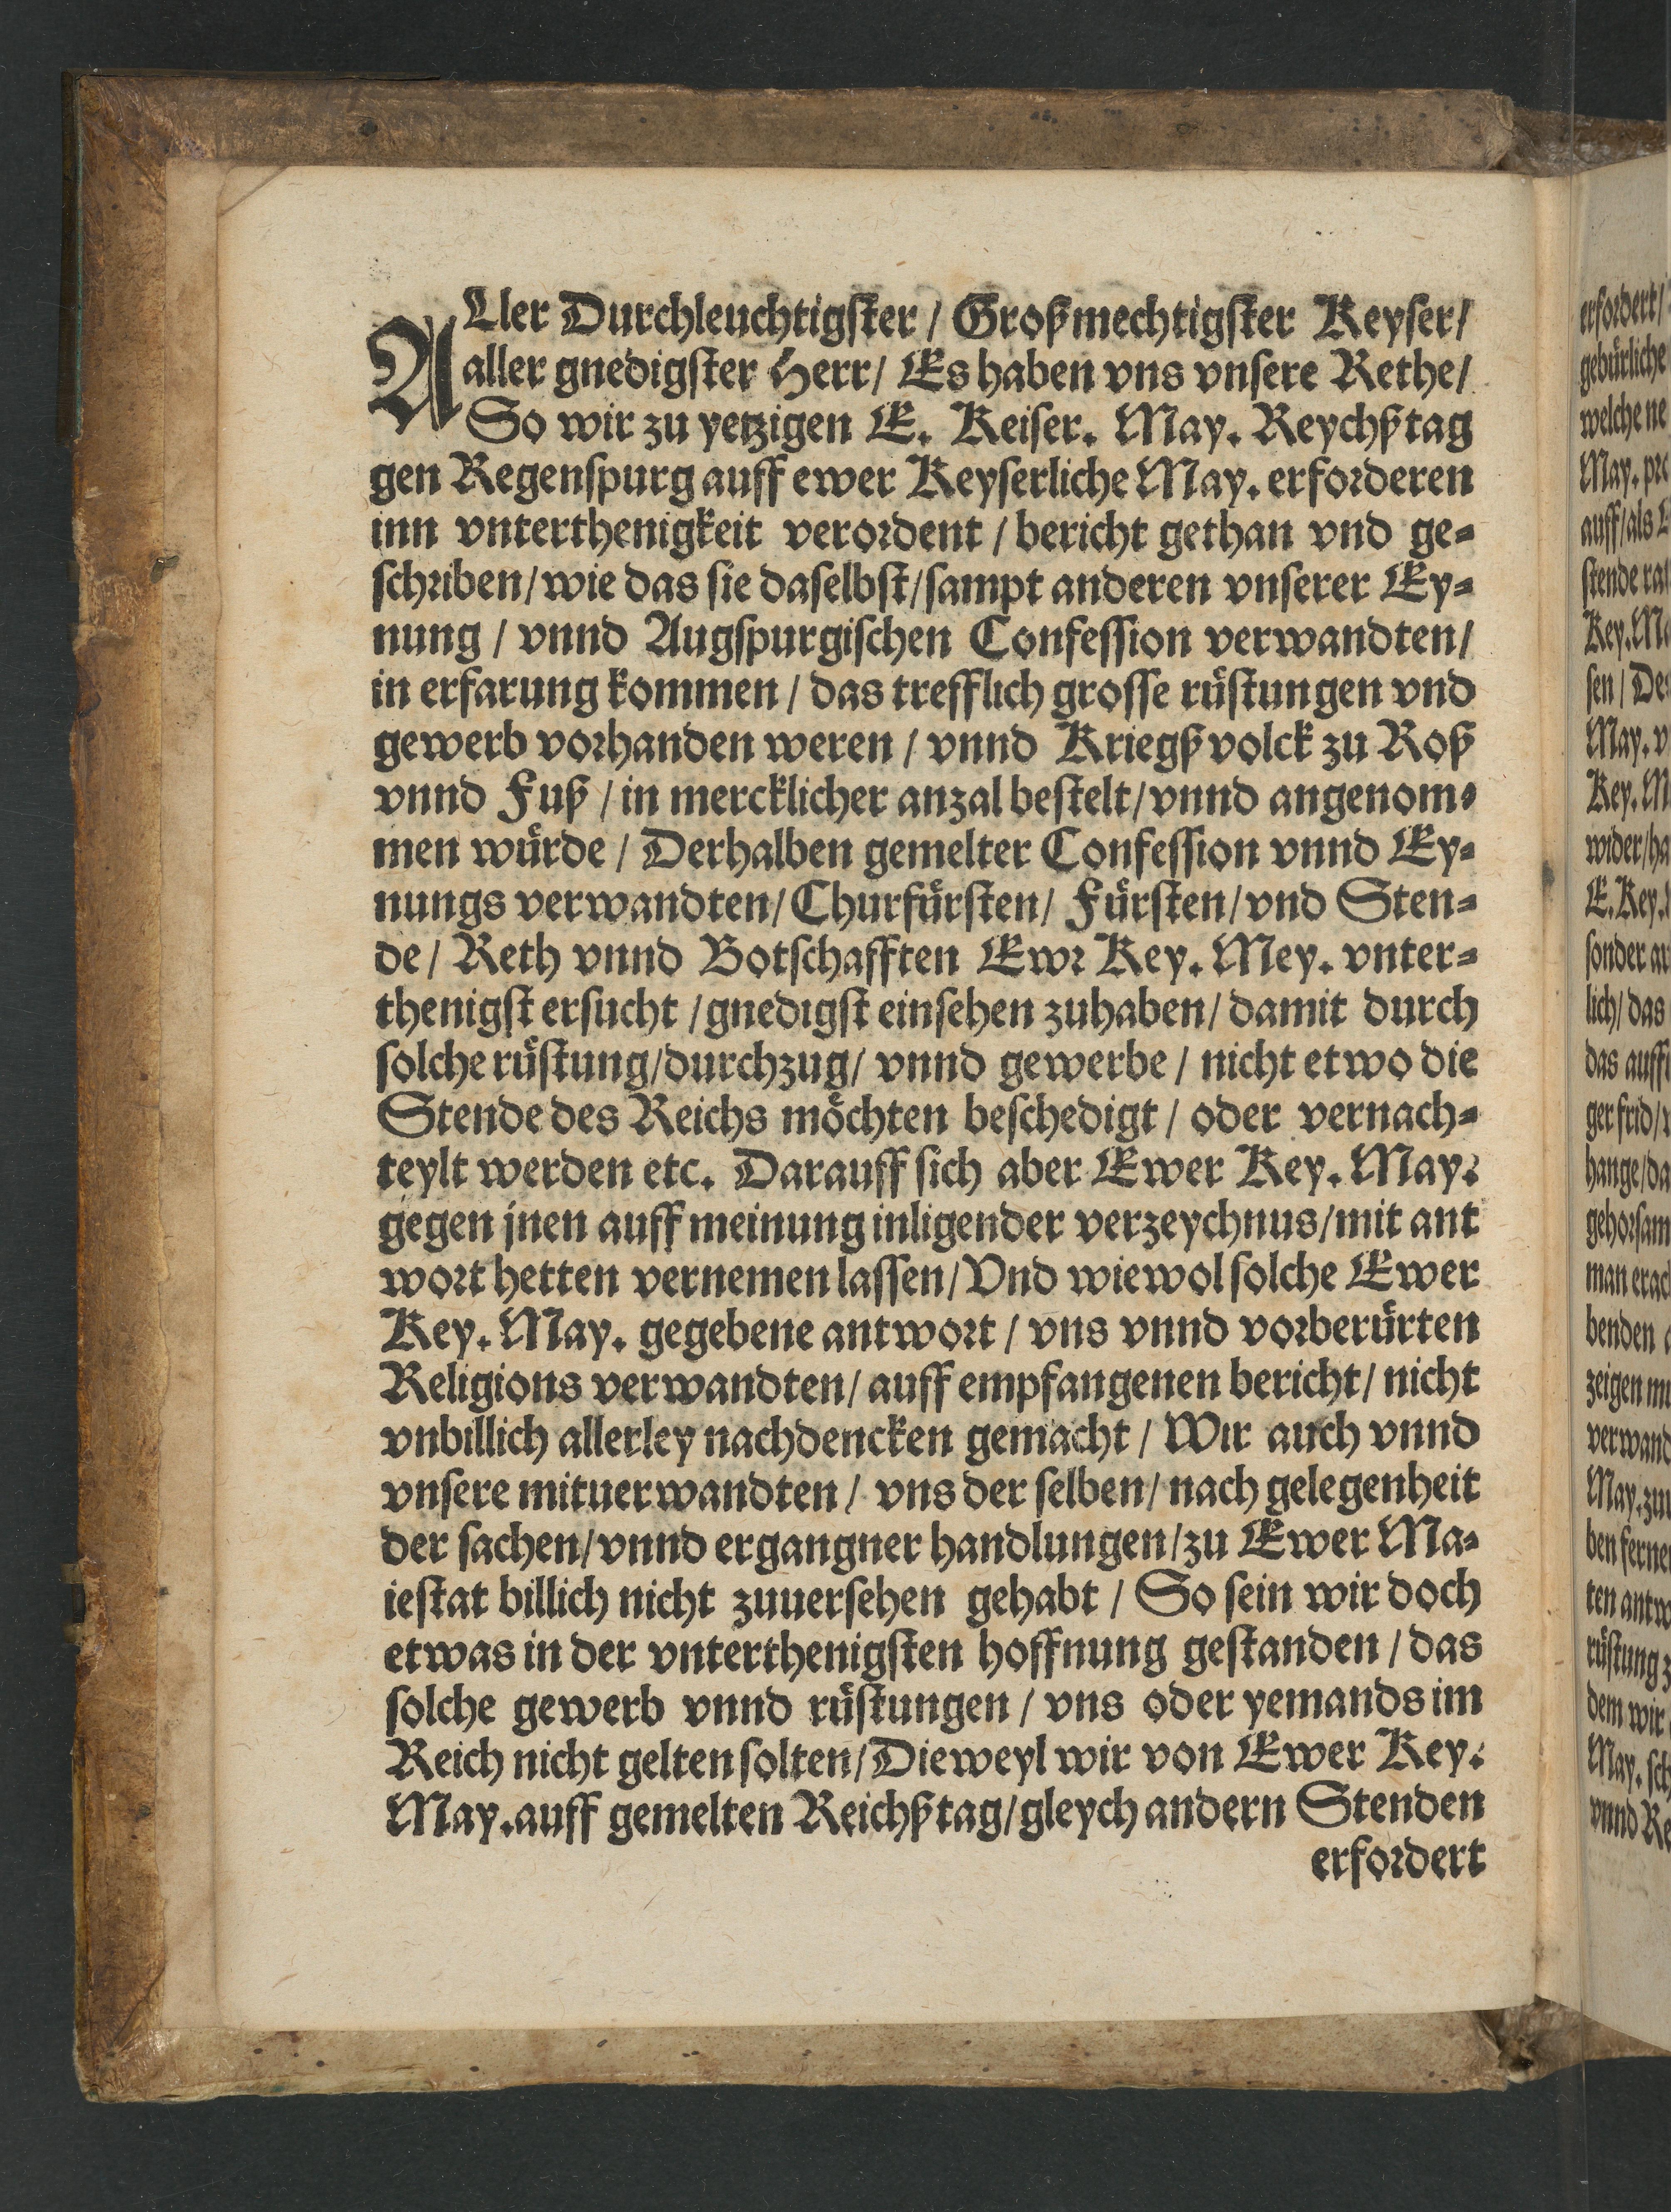 ALler Durchleuchtigster / Großmechtigster Keyser /
aller gnedigster Herr / Es haben vns vnsere Rethe /
So wir zu yetzigen E. Keiser. May. Reychßtag
gen Regenspurg auff ewer Keyserliche May. erforderen
inn vnterthenigkeit verordent / bericht gethan vnd ge=
schriben / wie das sie daselbst / sampt anderen vnserer Ey=
nung / vnnd Augspurgischen Confession verwandten /
in erfarung kommen / das trefflich grosse rüstungen vnd
gewerb vorhanden weren / vnnd Kriegßvolck zu Roß
vnnd Fuß / in mercklicher anzal bestelt / vnnd angenom=
men würde / Derhalben gemelter Confession vnnd Ey=
nungs verwandten / Churfürsten / Fürsten / vnd Sten=
de / Reth vnnd Botschafften Ewr Key. Mey. vnter=
thenigst ersucht / gnedigst einsehen zuhaben / damit durch
solche rüstung / durchzug / vnnd gewerbe / nicht etwo die
Stende des Reichs möchten beschedigt / oder vernach=
teylt werden etc. Darauff sich aber Ewer Key. May.
gegen jnen auff meinung inligender verzeychnus / mit ant
wort hetten vernemen lassen / Vnd wiewol solche Ewer
Key. May. gegebene antwort / vns vnnd vorberürten
Religions verwandten / auff empfangenen bericht / nicht
vnbillich allerley nachdencken gemacht / Wir auch vnnd
vnsere mituerwandten / vns der selben / nach gelegenheit
der sachen / vnnd ergangner handlungen / zu Ewer Ma=
iestat billich nicht zuuersehen gehabt / So sein wir doch
etwas in der vnterthenigsten hoffnung gestanden / das
solche gewerb vnnd rüstungen / vns oder yemands im
Reich nicht gelten solten / Dieweyl wir von Ewer Key.
May. auff gemelten Reichßtag / gleych andern Stenden
erfordert
erfordert /
gebürliche
welche
May.
auff / als
stende
Key.
sen /
May.
Key.
wider /
E. Key.
sonder
lich / das
das
ger frid /
hange /
gehorsam
man
benden
zeigen
May.
ben
ten
rüstung
dem wir
May.
vnnd